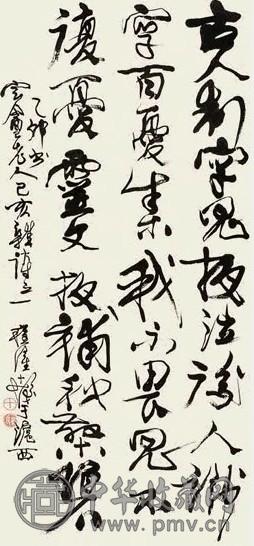 古人制字鬼夜泣後人識
字百憂集我不畏鬼不
復憂靈文夜補秋燈碧
乙卯書
定盦老人己亥雜詩之一
于滬西
中华收藏网
www.pmv.cn